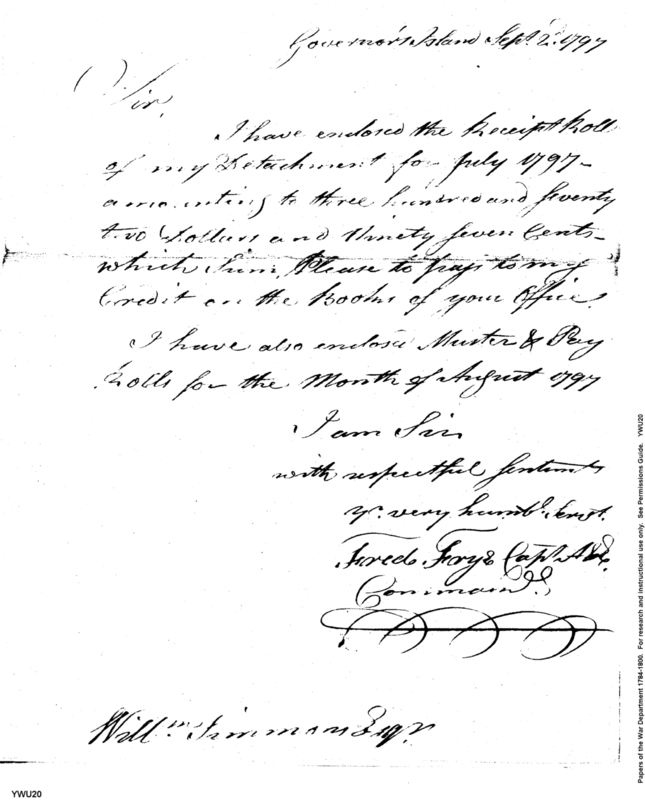 Governor's Island Sept. 2d. 1797
Sir,
I have enclosed the Receipt Roll
of my Detachment for July 1797-
amounting to three hundred and seventy
two Dollars and Ninety seven Cents-
which Sum, Please to pass to my
Credit on the Books of your Office.
I have also enclosed Muster & Pay
Rolls for the Month of August 1797
I am Sir
with respectful Sentiments
yr. very humbl. Servt.
Fred. Frye Capt. A&E.
Command.g
Willm. Simmons Esqr.
YWU20
Papers of the War Department 1784-1800. For research and instructional use only. See Permissions Guide. YWU20